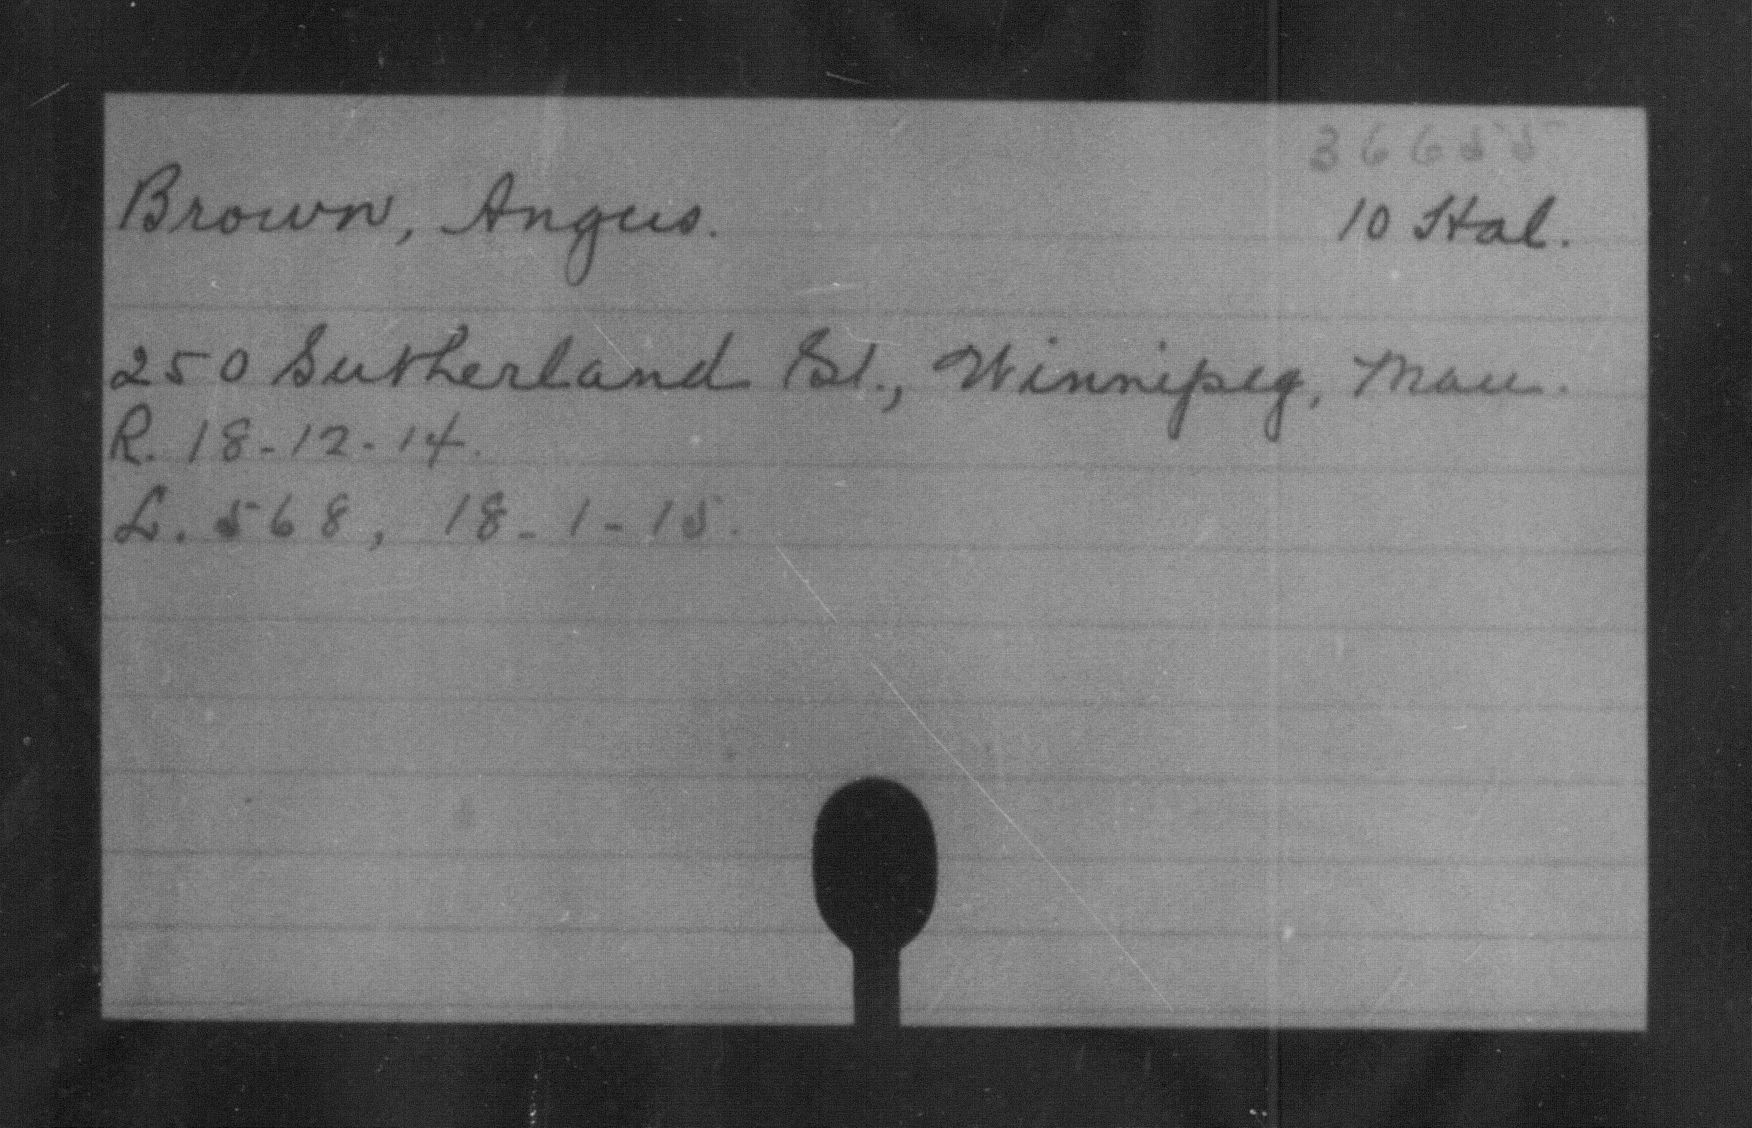 36655
Brown, Angus. 10 Hal.
250 Sutherland St., Winnipeg, Man.
R. 18-12-14.
L. 568, 18-1-15.